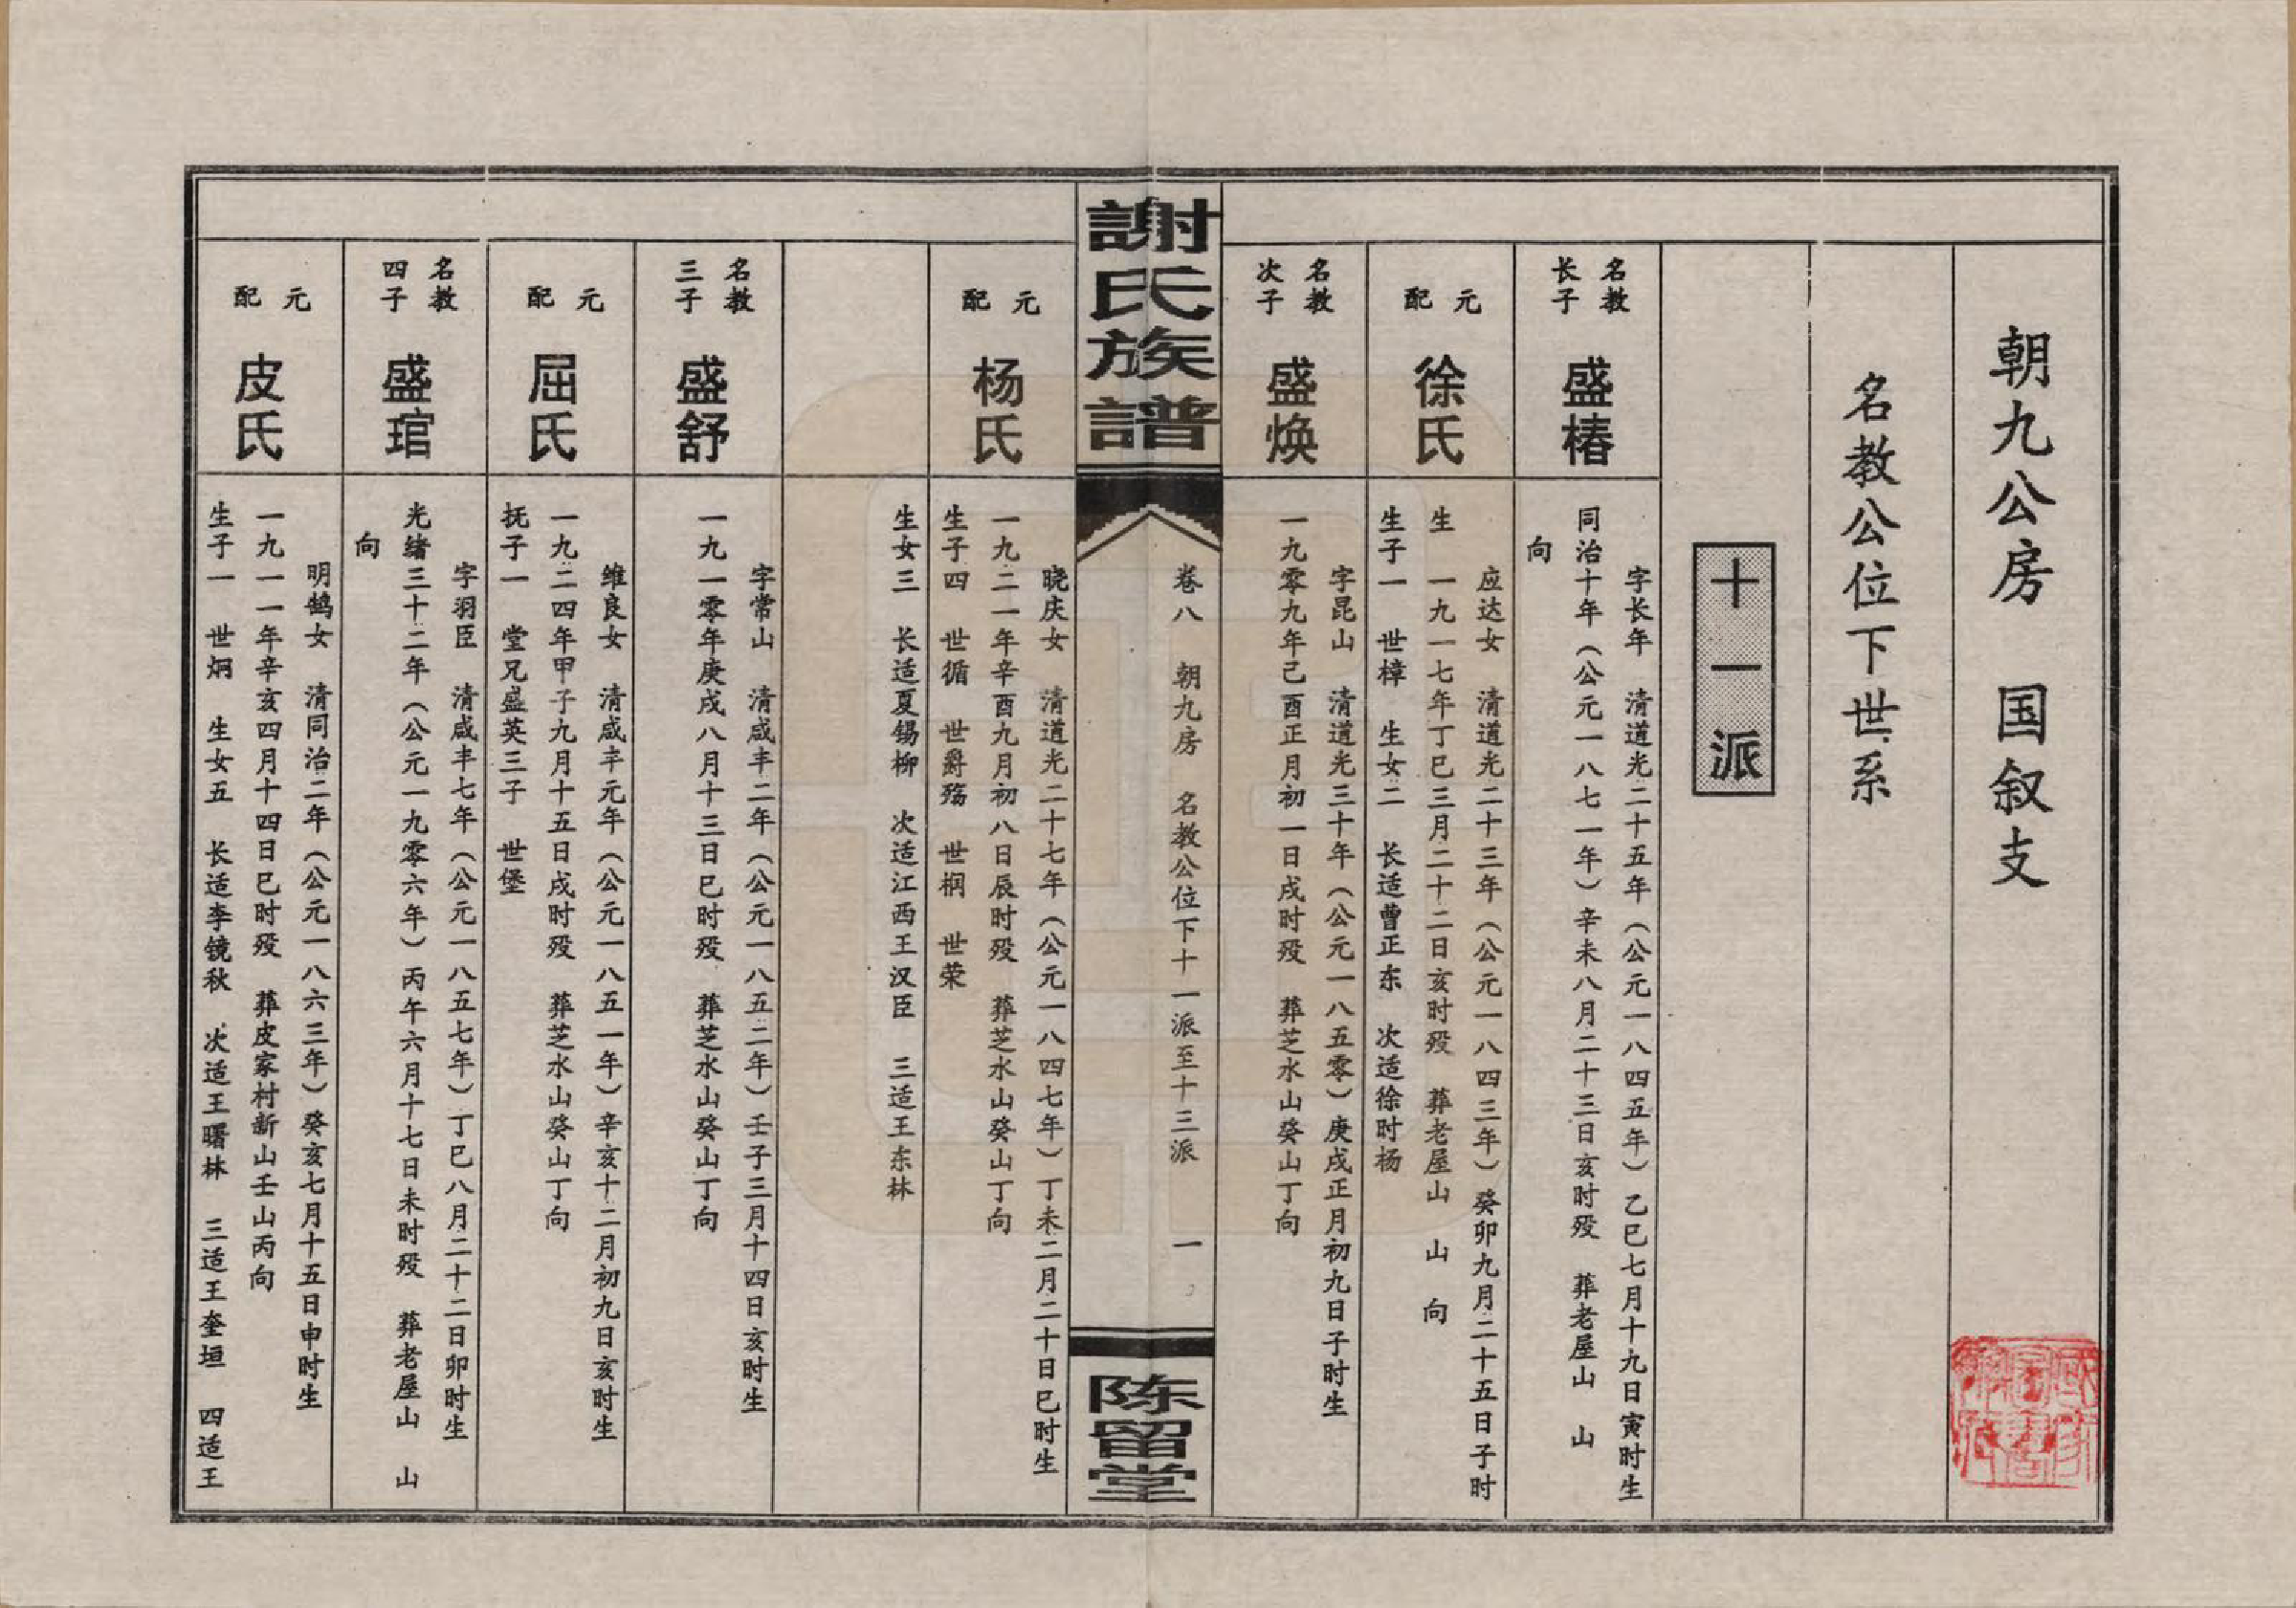 朝九公房 国叙支
名教公位下世系
十一派
名教
长子
盛椿
字长年 清道光二十五年（公元一八四五年）乙巳七月十九日寅时生
同治十年（公元一八七一年）辛未八月二十三日亥时殁 葬老屋山 山
向
元
配
徐氏
应达女 清道光二十三年（公元一八四三年）癸卯九月二十五日子时
生 一九一七年丁巳三月二十二日亥时殁 葬老屋山 山 向
生子一 世樟 生女二 长适曹正东 次适徐时杨
名教
次子
盛焕
字昆山 清道光三十年（公元一八五零）庚戌正月初九日子时生
一九零九年己酉正月初一日戌时殁 葬芝水山癸山丁向
謝氏族譜
卷八 朝九房 名教公位下十一派至十三派 一
陈留堂
元
配
杨氏
晓庆女 清道光二十七年（公元一八四七年）丁未二月二十日巳时生
一九二一年辛酉九月初八日辰时殁 葬芝水山癸山丁向
生子四 世循 世爵殇 世桐 世荣
生女三 长适夏锡柳 次适江西王汉臣 三适王东林
名教
三子
盛舒
字常山 清咸丰二年（公元一八五二年）壬子三月十四日亥时生
一九一零年庚戌八月十三日巳时殁 葬芝水山癸山丁向
元
配
屈氏
维良女 清咸丰元年（公元一八五一年）辛亥十二月初九日亥时生
一九二四年甲子九月十五日戌时殁 葬芝水山癸山丁向
抚子一 堂兄盛英三子 世堡
名教
四子
盛琯
字羽臣 清咸丰七年（公元一八五七年）丁巳八月二十二日卯时生
光绪三十二年（公元一九零六年）丙午六月十七日未时殁 葬老屋山 山
向
元
配
皮氏
明鹤女 清同治二年（公元一八六三年）癸亥七月十五日申时生
一九一一年辛亥四月十四日巳时殁 葬皮家村新山壬山丙向
生子一 世炯 生女五 长适李镜秋 次适王曙林 三适王奎垣 四适王